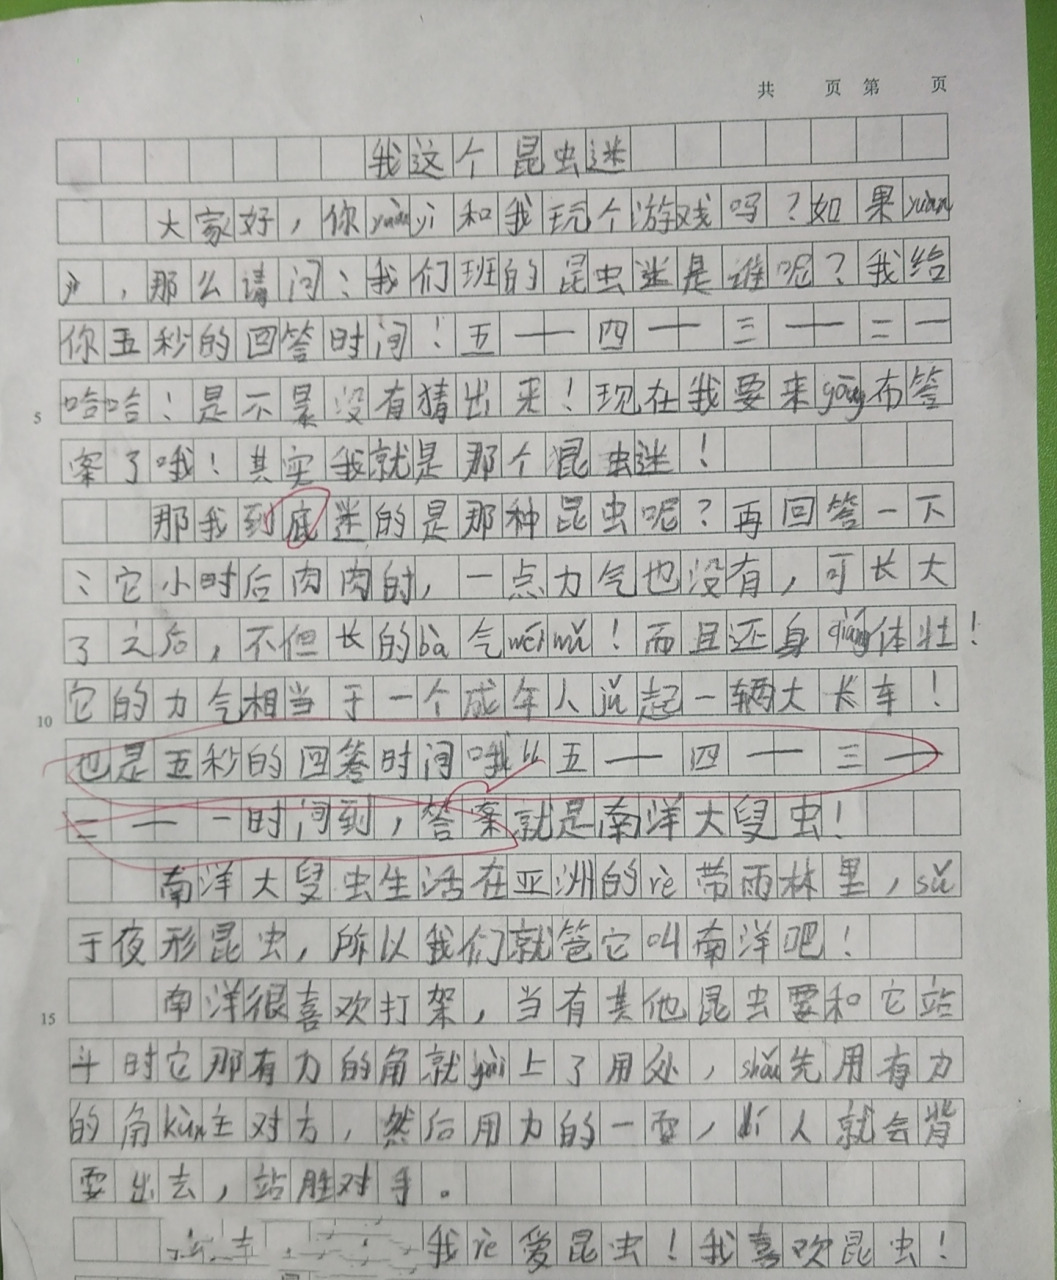 共 页 第 页
我这个昆虫迷
大家好，你yuànyì和我玩个游戏吗？如果yuàn
yì，那么请问：我们班的昆虫迷是谁呢？我给
你五秒的回答时间！五——四——三——二—
5 哈哈！是不是没有猜出来！现在我要来gōng布答
案了哦！其实我就是那个昆虫迷！
那我到底迷的是那种昆虫呢？再回答一下
：它小时后肉肉的，一点力气也没有，可长大
了之后，不但长的bà气wēiwǔ！而且还身qiáng体壮！
10 它的力气相当于一个成年人jǔ起一辆大卡车！
也是五秒的回答时间哦！五——四——三—
二——一时间到，答案就是南洋大叟虫！
南洋大叟虫生活在亚洲的rè带雨林里，sǔ
于夜形昆虫，所以我们就管它叫南洋吧！
15 南洋很喜欢打架，当有其他昆虫要和它站
斗时它那有力的角就pài上了用处，shǒu先用有力
的角kùn主对方，然后用力的一要，人就会背
要出去，站胜对手。
我rè爱昆虫！我喜欢昆虫！